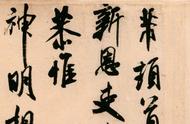 芾頓首
新恩吏
恭惟
神明相